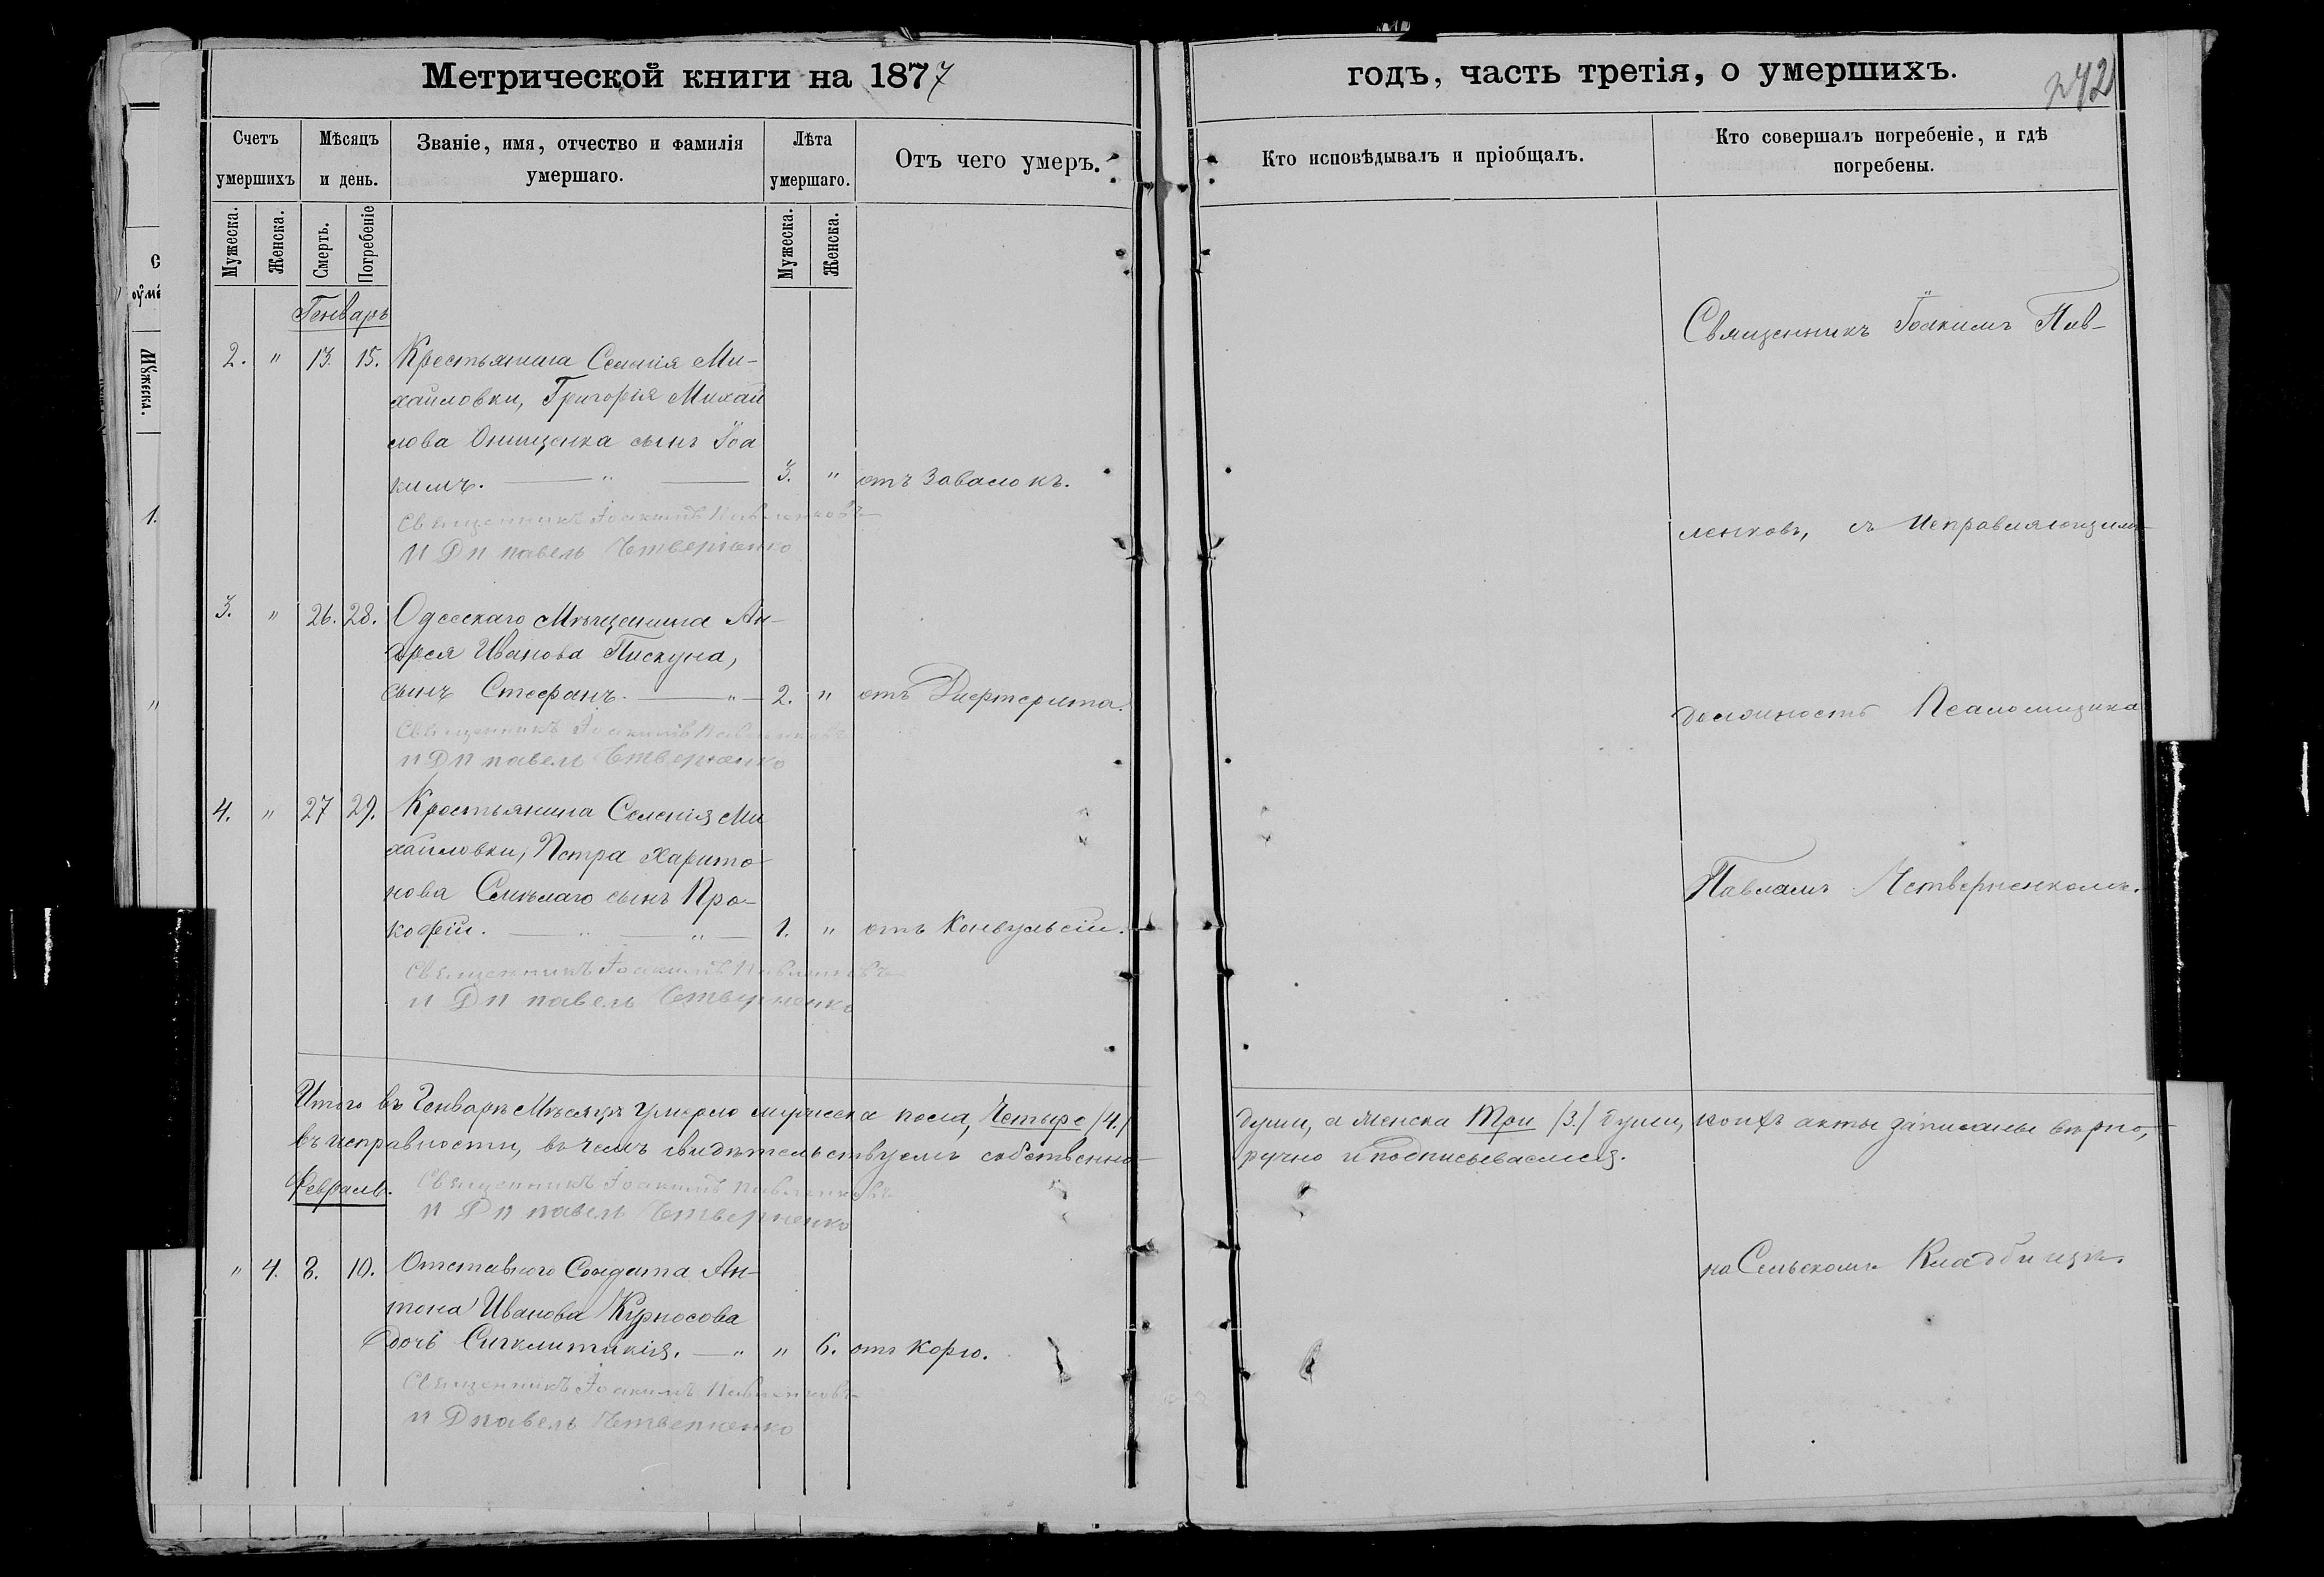 Метрической книги на 1877
годъ, часть третія, о умершихъ.
242
Счетъ умершихъ
Мѣсяцъ и день.
Званіе, имя, отчество и фамилія умершаго.
Лѣта умершаго.
Отъ чего умеръ.
Кто исповѣдывалъ и пріобщалъ.
Кто совершалъ погребеніе, и гдѣ
погребены.
Мужеска.
Женска.
Смерть.
Погребеніе
Мужеска.
Женска.
Генварь
2. " 13. 15. Крестьянина Селенія Ми-
хайловки, Григорія Михай
лова Онищенка сынъ Іоа
кимъ. " 3. " отъ Завалокъ.
Священникъ Іоакимъ Павленковъ
И Д П павелъ Четверненко
3. " 26. 28. Одесскаго Мѣщанина Ан-
дрея Иванова Пискуна,
сынъ Стефанъ. " 2. " отъ Дифтерита.
Священникъ Іоакимъ Павленковъ
И Д П павелъ Четверненко
4. " 27 29. Крестьянина Селенія Ми
хайловки, Петра Харито
нова Смѣлаго сынъ Про-
кофій. " " 1. " отъ Конвульсіи.
Священникъ Іоакимъ Павленковъ
И Д П павелъ Четверненко
Итого въ Генварѣ Мѣсяцѣ умерло мужеска пола, Четыре /4./
въ исправности, въ чемъ свидѣтельствуемъ собственно-
Февраль. Священникъ Іоакимъ Павленковъ
И Д П павелъ Четверненко
" 4. 8. 10. Отставного Солдата Ан-
тона Иванова Курносова
дочь Сигклитикія. " " 6. отъ Корю.
Священникъ Іоакимъ Павленковъ
И Д П павелъ Четверненко
Священникъ Іоакимъ Пав-
ленковъ, съ Исправляющимъ
должность Псаломщика
Павломъ Четверненкомъ.
души, а женска Три /3./ души, коихъ акты записаны вѣрно,
ручно и подписываемся.
на Сельскомъ Кладбищѣ.
С
оумє
Мужеска.
1.
"